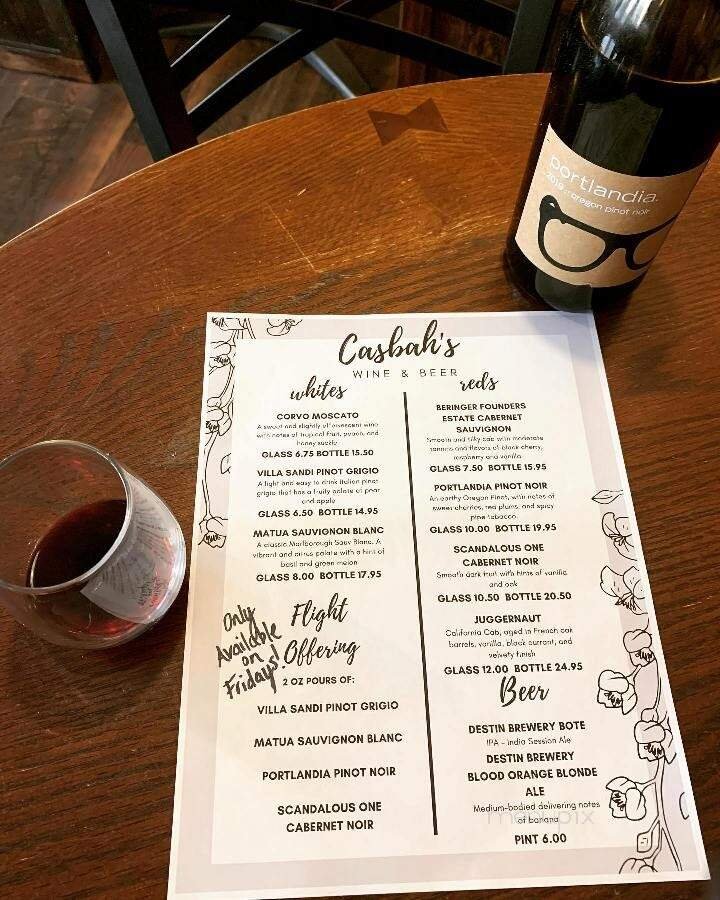 portlandia
2019 oregon pinot noir
Casbah's
WINE & BEER
whites
CORVO MOSCATO
A sweet and slightly effervescent wine
with notes of tropical fruit, peach, and
honey suckle
GLASS 6.75 BOTTLE 15.50
VILLA SANDI PINOT GRIGIO
A light and easy to drink Italian pinot
grigio that has a fruity palate of pear
and apple
GLASS 6.50 BOTTLE 14.95
MATUA SAUVIGNON BLANC
A classic Marlborough Sauv Blanc. A
vibrant and citrus palate with a hint of
basil and green melon
GLASS 8.00 BOTTLE 17.95
Only
Available
on
Fridays!
Flight
Offering
2 OZ POURS OF:
VILLA SANDI PINOT GRIGIO
MATUA SAUVIGNON BLANC
PORTLANDIA PINOT NOIR
SCANDALOUS ONE
CABERNET NOIR
reds
BERINGER FOUNDERS
ESTATE CABERNET
SAUVIGNON
Smooth and silky cab with moderate
tannins and flavors of black cherry,
raspberry and vanilla
GLASS 7.50 BOTTLE 15.95
PORTLANDIA PINOT NOIR
An earthy Oregon Pinot, with notes of
sweet cherries, tea plums, and spicy
pipe tobacco
GLASS 10.00 BOTTLE 19.95
SCANDALOUS ONE
CABERNET NOIR
Smooth dark fruit with hints of vanilla
and oak
GLASS 10.50 BOTTLE 20.50
JUGGERNAUT
California Cab, aged in French oak
barrels, vanilla, black currant, and
velvety finish
GLASS 12.00 BOTTLE 24.95
Beer
DESTIN BREWERY BOTE
IPA - India Session Ale
DESTIN BREWERY
BLOOD ORANGE BLONDE
ALE
Medium-bodied delivering notes
of banana
PINT 6.00
menupix